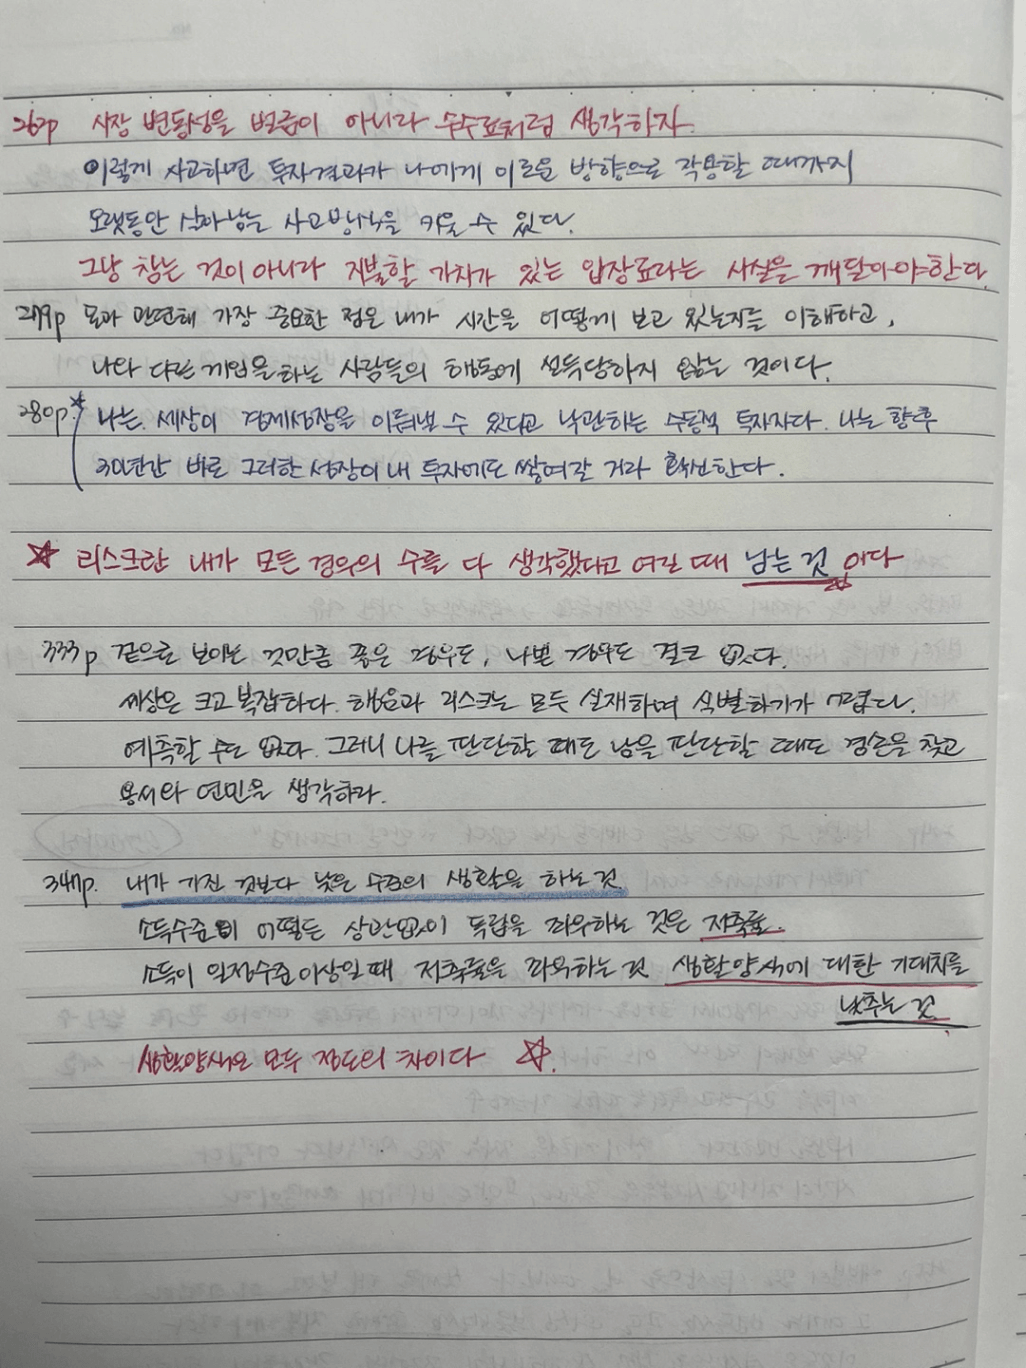 262p 시장 변동성을 벌금이 아니라 수수료처럼 생각하자.
이렇게 사고하면 투자결과가 나에게 이로운 방향으로 작용할 때까지
오랫동안 살아남는 사고방식을 키울 수 있다.
그냥 참는 것이 아니라 지불할 가치가 있는 입장료라는 사실을 깨달아야한다.
279p 돈과 관련해 가장 중요한 점은 내가 시간을 어떻게 보고 있는지를 이해하고,
나와 다른 게임을 하는 사람들의 행동에 설득당하지 않는 것이다.
280p ★ 나는 세상이 경제성장을 이뤄낼 수 있다고 낙관하는 수동적 투자자다. 나는 향후
30년간 바로 그러한 성장이 내 투자에도 쌓여갈 거라 확신한다.
☆ 리스크란 내가 모든 경우의 수를 다 생각했다고 여길 때 남는 것이다
333p 겉으로 보이는 것만큼 좋은 경우도, 나쁠 경우도 결코 없다.
세상은 크고 복잡하다. 행운과 리스크는 모두 실재하며 식별하기가 어렵다.
예측할 수도 없다. 그러니 나를 판단할 때도 남을 판단할 때도 겸손을 찾고
용서와 연민을 생각하라.
347p. 내가 가진 것보다 낮은 수준의 생활을 하는 것.
소득수준이 어떻든 상관없이 독립을 좌우하는 것은 저축률.
소득이 일정수준 이상일 때 저축률을 좌우하는 것 생활양식에 대한 기대치를
낮추는 것.
생활양식은 모두 정도의 차이다 ☆.